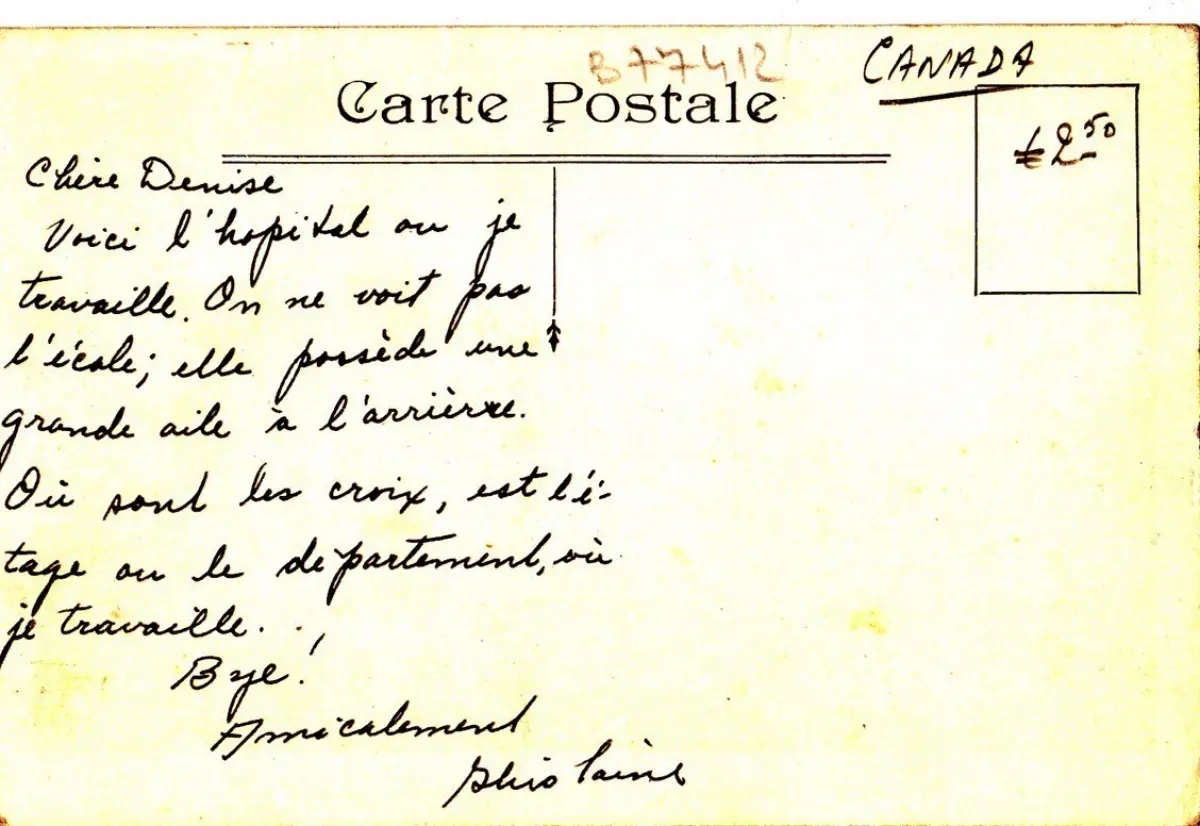 B77412
CANADA
Carte Postale
€2.50
Chère Denise
Voici l'hopital ou je
travaille. On ne voit pas
l'école; elle possède une
grande aile à l'arrière.
Où sont les croix, est l'é-
tage ou le département, où
je travaille.
Bye!
Amicalement
Ghislaine